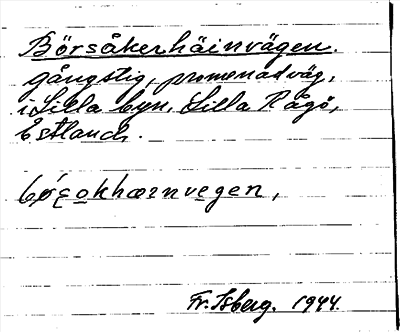 Börsåkerhäinvägen.
gångstig, promenadväg,
i Lilla byn, Lilla Rågö,
Estland.
bǿɛokhærnvegen,
Fr. Isberg. 1944.